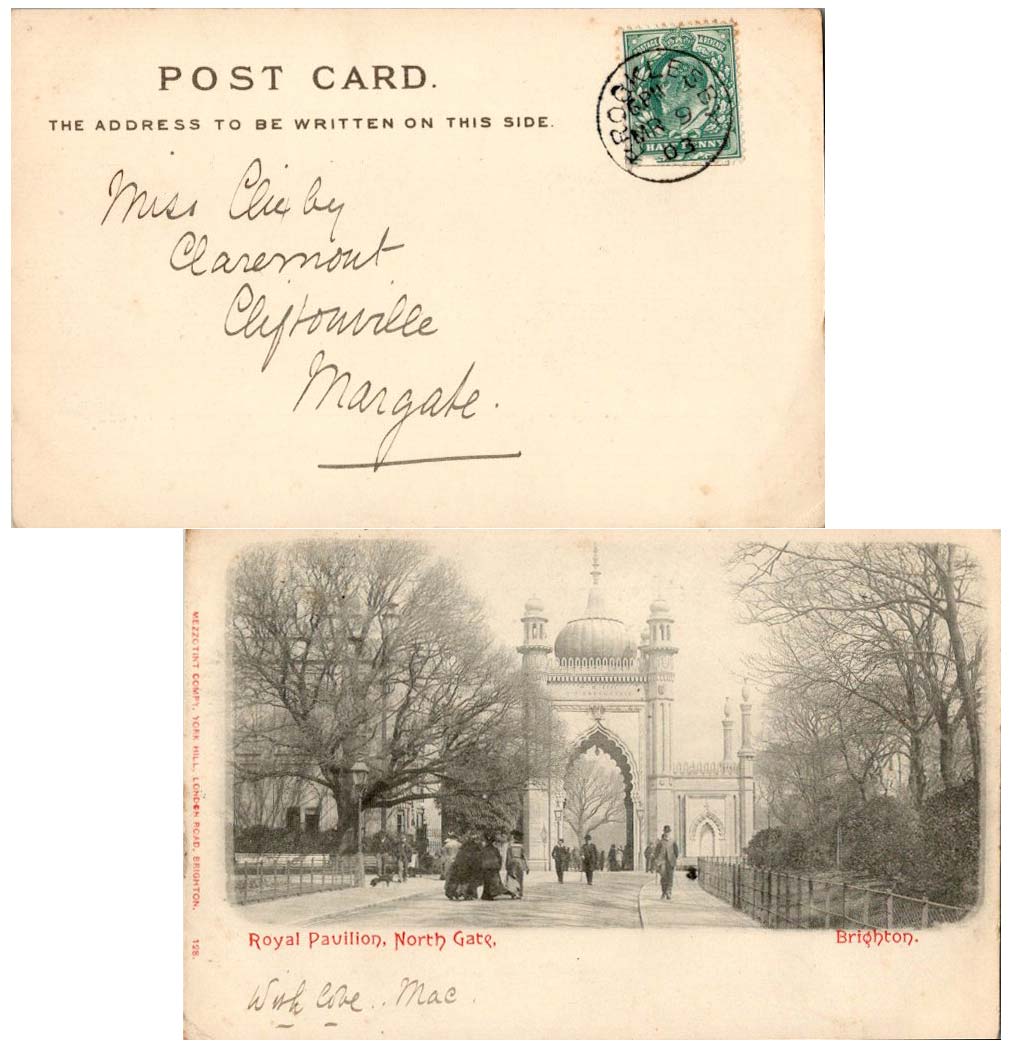 POST CARD.
THE ADDRESS TO BE WRITTEN ON THIS SIDE.
POSTAGE & REVENUE
HALFPENNY
BROCKLESBY
6 PM
MR 9
03
Miss Clixby
Claremont
Cliftonville
Margate.
MEZZOTINT COMPY, YORK HILL, LONDON ROAD, BRIGHTON. 128.
Royal Pavilion, North Gate, Brighton.
With Love.. Mac.